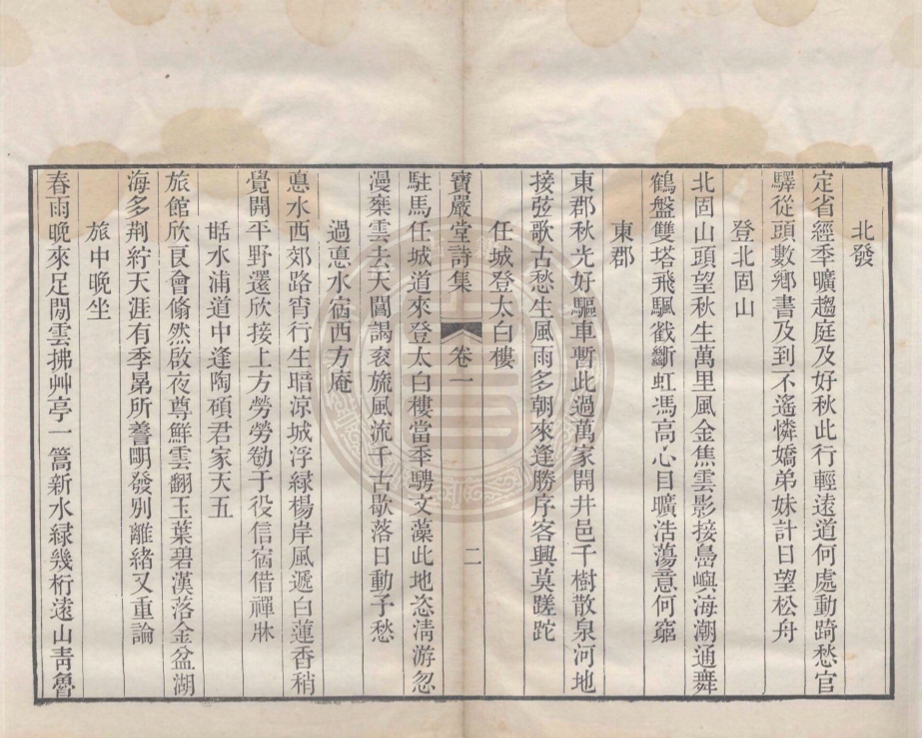 北發
定省經季曠趨庭及好秋此行輕遠道何處動踦愁官
驛從頭數鄉書及到不遙憐嬌弟妹計日望松舟
登北固山
北固山頭望秋生萬里風金焦雲影接島嶼海潮通舞
鶴盤雙塔飛颿戳斷虹馮高心目曠浩蕩意何窮
東郡
東郡秋光好驅車暫此過萬家開井邑千樹散泉河地
接弦歌古愁生風雨多朝來逢勝序客興莫蹉跎
任城登太白樓
寶嚴堂詩集
卷一
二
駐馬任城道來登太白樓當秊騁文藻此地恣淸游忽
漫棄雲去天閶謁袞旒風流千古歇落日動予愁
過悳水宿西方庵
悳水西郊路宵行生暗涼城浮緑楊岸風遞白蓮香稍
覺開平野還欣接上方勞勞勌于役信宿借禪牀
甛水浦道中逢陶碩君家天五
旅館欣良會翛然啟夜尊鮮雲翻玉葉碧漢落金盆湖
海多荆紵天涯有季昴所誊明發別離緒又重論
旅中晚坐
春雨晚來足閒雲拂艸亭一篙新水緑幾桁遠山靑魯